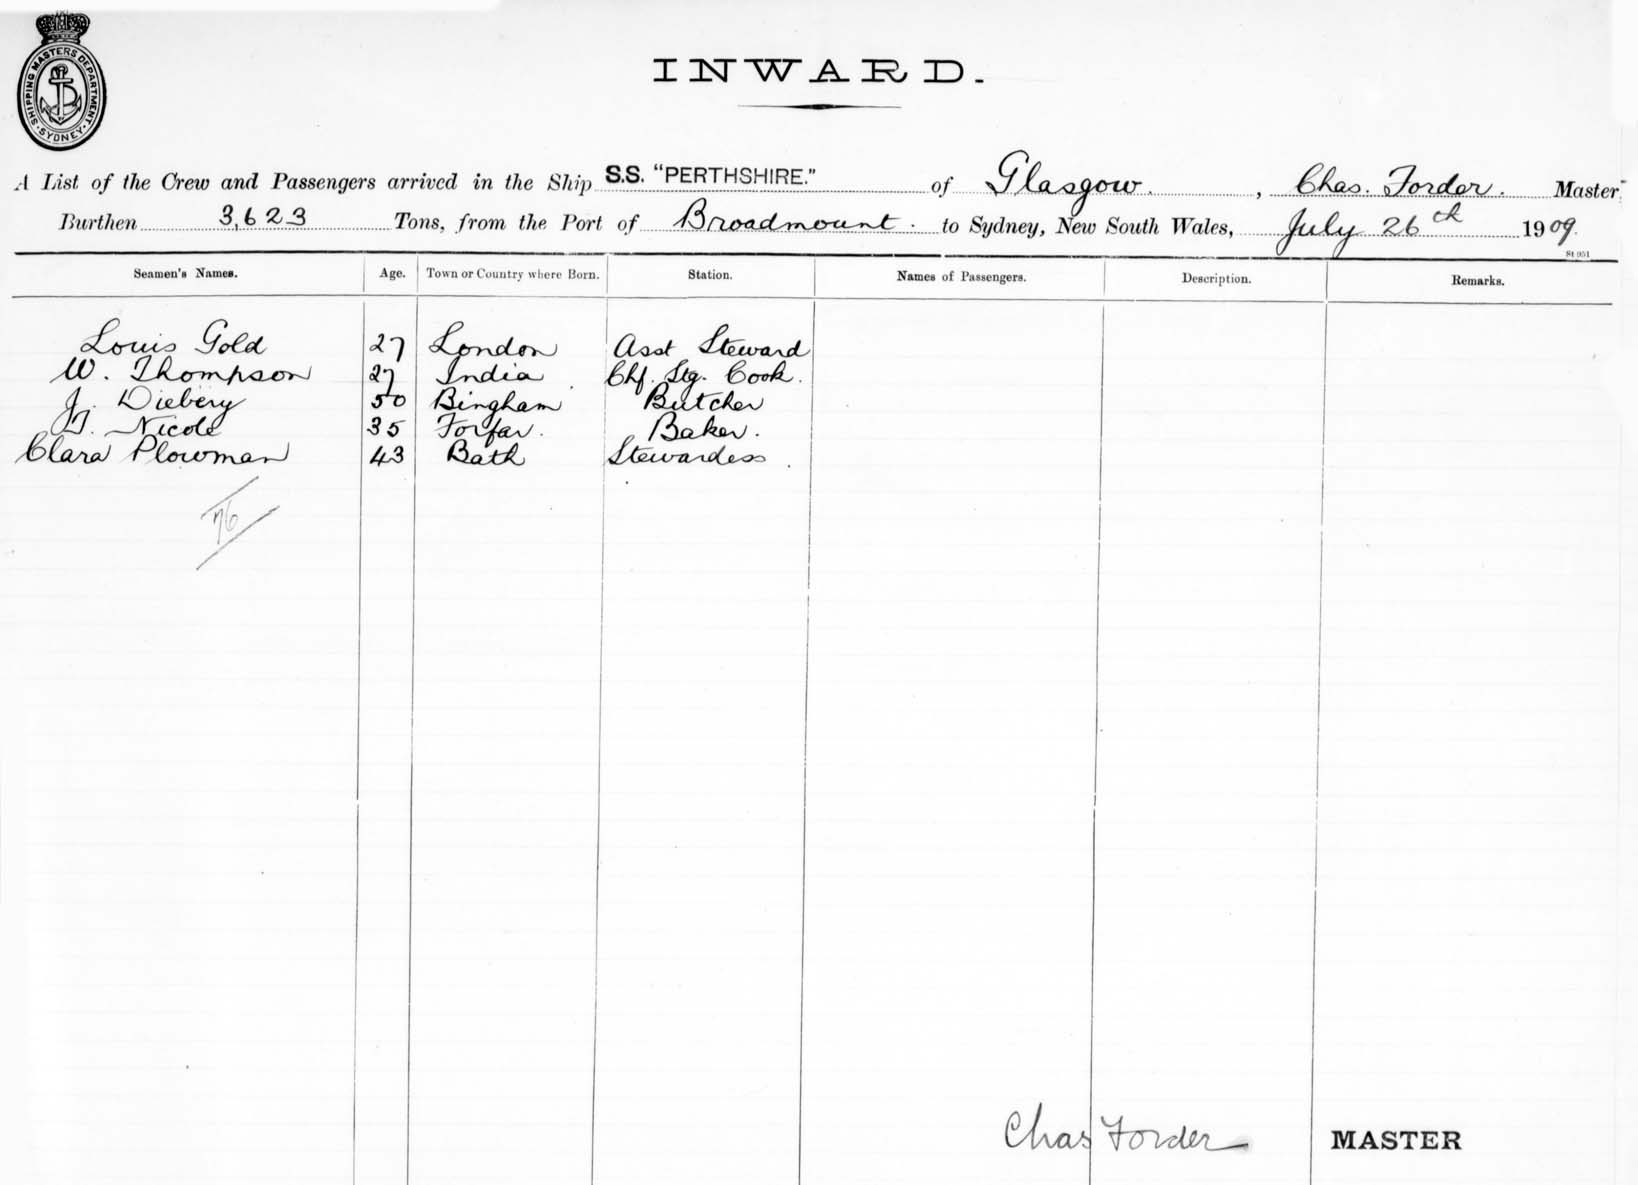 SHIPPING MASTERS DEPARTMENT
· SYDNEY ·
INWARD.
A List of the Crew and Passengers arrived in the Ship S.S. "PERTHSHIRE." of Glasgow. , Chas. Forder. Master,
Burthen 3,623 Tons, from the Port of Broadmount. to Sydney, New South Wales, July 26th 1909.
St 951
Seamen's Names. Age. Town or Country where Born. Station. Names of Passengers. Description. Remarks.
Louis Gold 27 London Asst Steward
W. Thompson 27 India Chf. Stg. Cook.
J. Diebery 50 Bingham Butcher
Nicole 35 Forfar. Baker.
Clara Plowman 43 Bath Stewardess
76
Chas Forder MASTER